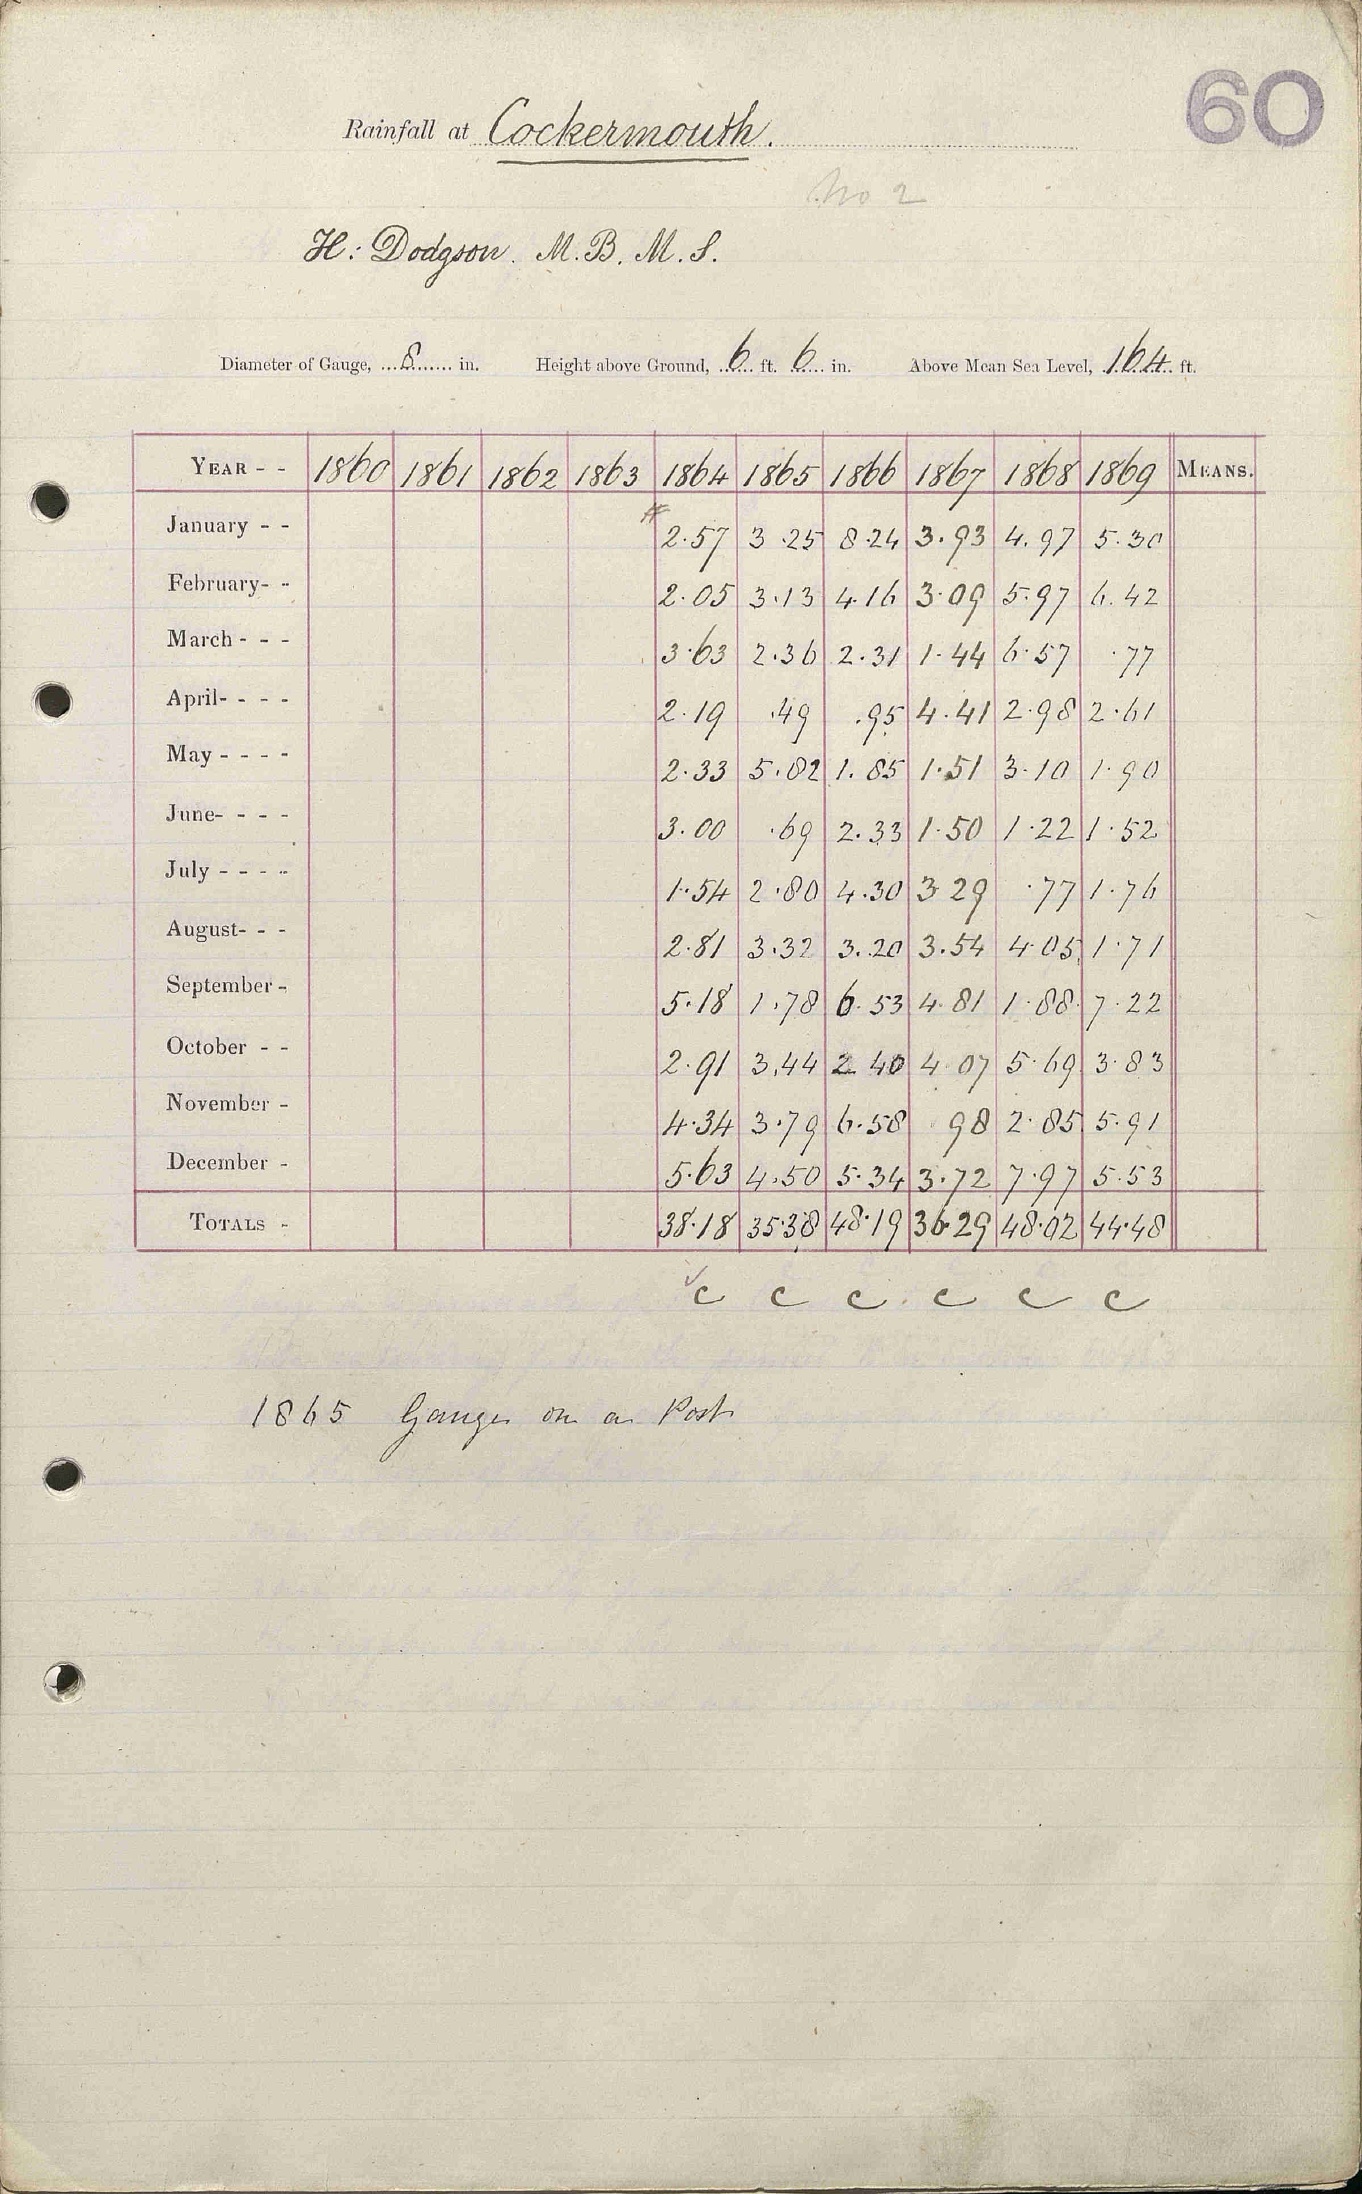 60
Rainfall at Cockermouth.
No 2
H: Dodgson. M.B. M.S.
Diameter of Gauge, 8 in. Height above Ground, 6 ft. 6 in. Above Mean Sea Level, 164 ft.
YEAR - - 1860 1861 1862 1863 1864 1865 1866 1867 1868 1869 MEANS.
January - - 2.57 3.25 8.24 3.93 4.97 5.30
February- - 2.05 3.13 4.16 3.09 5.97 6.42
March - - - 3.63 2.36 2.31 1.44 6.57 .77
April- - - - 2.19 .49 .95 4.41 2.98 2.61
May - - - - 2.33 5.82 1.85 1.51 3.10 1.90
June- - - - 3.00 .69 2.33 1.50 1.22 1.52
July - - - - 1.54 2.80 4.30 3.29 .77 1.76
August- - - 2.81 3.32 3.20 3.54 4.05 1.71
September - 5.18 1.78 6.53 4.81 1.88 7.22
October - - 2.91 3.44 2.40 4.07 5.69 3.83
November - 4.34 3.79 6.58 .98 2.85 5.91
December - 5.63 4.50 5.34 3.72 7.97 5.53
TOTALS - 38.18 35.38 48.19 36.29 48.02 44.48
c c c c c c
1865 Gauge on a Post